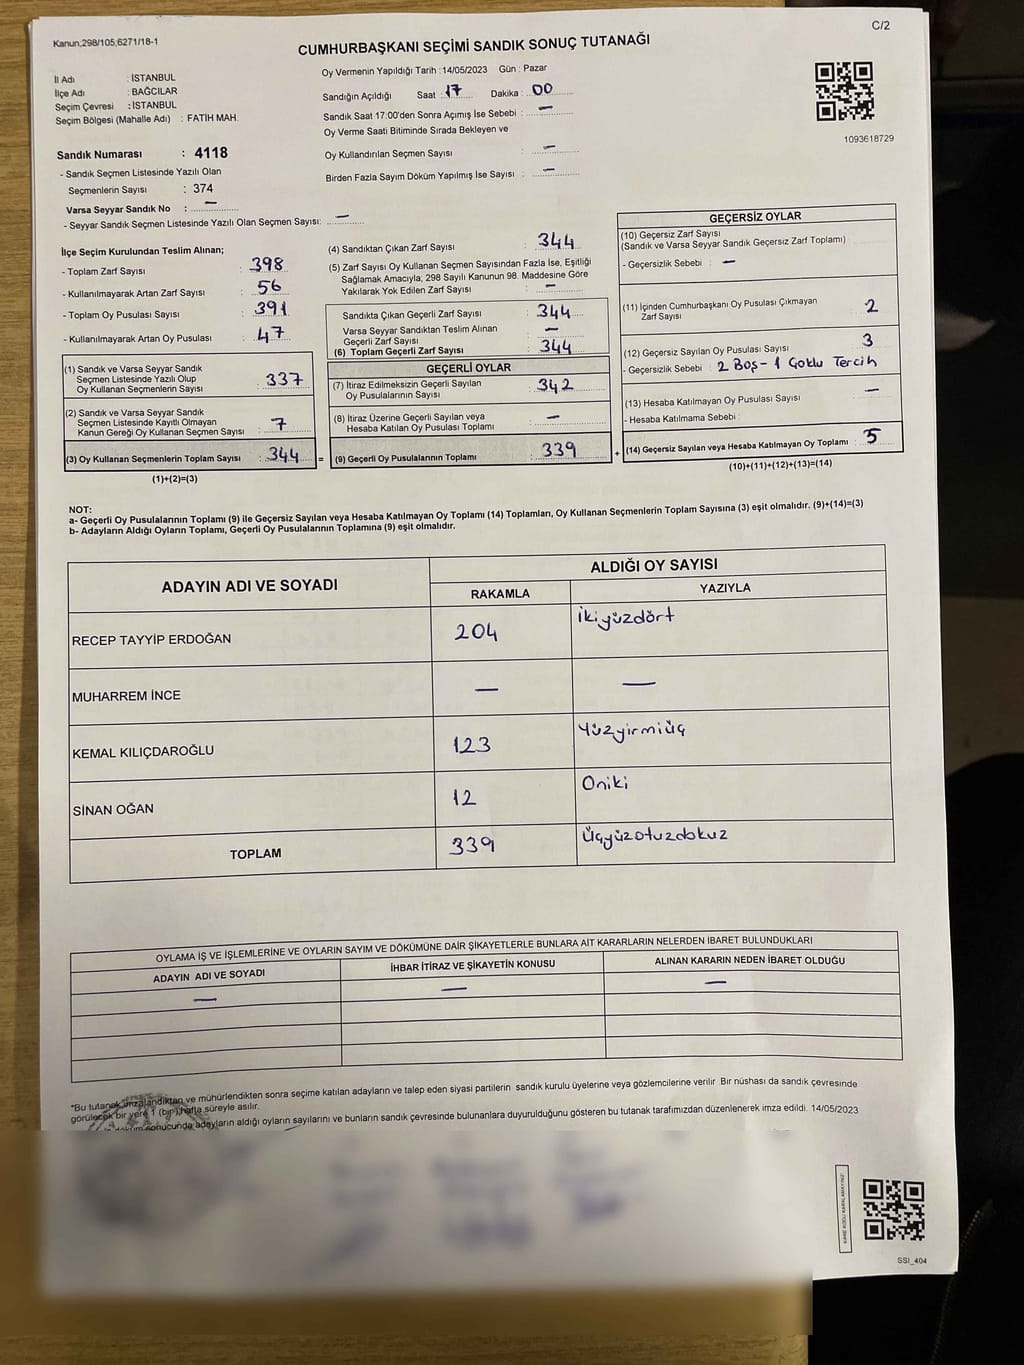 Kanun;298/105;6271/18-1
C/2
CUMHURBAŞKANI SEÇİMİ SANDIK SONUÇ TUTANAĞI
İl Adı : İSTANBUL
İlçe Adı : BAĞCILAR
Seçim Çevresi : İSTANBUL
Seçim Bölgesi (Mahalle Adı) : FATİH MAH.
Sandık Numarası : 4118
- Sandık Seçmen Listesinde Yazılı Olan
Seçmenlerin Sayısı : 374
Varsa Seyyar Sandık No : —
- Seyyar Sandık Seçmen Listesinde Yazılı Olan Seçmen Sayısı: —
Oy Vermenin Yapıldığı Tarih :14/05/2023 Gün : Pazar
Sandığın Açıldığı Saat : 17 Dakika : 00
Sandık Saat 17:00'den Sonra Açımış İse Sebebi : —
Oy Verme Saati Bitiminde Sırada Bekleyen ve
Oy Kullandırılan Seçmen Sayısı : —
Birden Fazla Sayım Döküm Yapılmış İse Sayısı : —
1093618729
İlçe Seçim Kurulundan Teslim Alınan;
- Toplam Zarf Sayısı : 398
- Kullanılmayarak Artan Zarf Sayısı : 56
- Toplam Oy Pusulası Sayısı : 391
- Kullanılmayarak Artan Oy Pusulası : 47
(1) Sandık ve Varsa Seyyar Sandık
Seçmen Listesinde Yazılı Olup
Oy Kullanan Seçmenlerin Sayısı : 337
(2) Sandık ve Varsa Seyyar Sandık
Seçmen Listesinde Kayıtlı Olmayan
Kanun Gereği Oy Kullanan Seçmen Sayısı : 7
(3) Oy Kullanan Seçmenlerin Toplam Sayısı : 344
(1)+(2)=(3)
(4) Sandıktan Çıkan Zarf Sayısı : 344
(5) Zarf Sayısı Oy Kullanan Seçmen Sayısından Fazla İse, Eşitliği
Sağlamak Amacıyla, 298 Sayılı Kanunun 98. Maddesine Göre
Yakılarak Yok Edilen Zarf Sayısı : —
Sandıkta Çıkan Geçerli Zarf Sayısı : 344
Varsa Seyyar Sandıktan Teslim Alınan
Geçerli Zarf Sayısı : —
(6) Toplam Geçerli Zarf Sayısı : 344
GEÇERLİ OYLAR
(7) İtiraz Edilmeksizin Geçerli Sayılan
Oy Pusulalarının Sayısı : 342
(8) İtiraz Üzerine Geçerli Sayılan veya
Hesaba Katılan Oy Pusulası Toplamı : —
= (9) Geçerli Oy Pusulalarının Toplamı : 339
GEÇERSİZ OYLAR
(10) Geçersiz Zarf Sayısı
(Sandık ve Varsa Seyyar Sandık Geçersiz Zarf Toplamı)
- Geçersizlik Sebebi : —
(11) İçinden Cumhurbaşkanı Oy Pusulası Çıkmayan
Zarf Sayısı : 2
(12) Geçersiz Sayılan Oy Pusulası Sayısı : 3
- Geçersizlik Sebebi : 2 Boş- 1 Çoklu Tercih
(13) Hesaba Katılmayan Oy Pusulası Sayısı : —
- Hesaba Katılmama Sebebi :
+ (14) Geçersiz Sayılan veya Hesaba Katılmayan Oy Toplamı : 5
(10)+(11)+(12)+(13)=(14)
NOT:
a- Geçerli Oy Pusulalarının Toplamı (9) ile Geçersiz Sayılan veya Hesaba Katılmayan Oy Toplamı (14) Toplamları, Oy Kullanan Seçmenlerin Toplam Sayısına (3) eşit olmalıdır. (9)+(14)=(3)
b- Adayların Aldığı Oyların Toplamı, Geçerli Oy Pusulalarının Toplamına (9) eşit olmalıdır.
ADAYIN ADI VE SOYADI
ALDIĞI OY SAYISI
RAKAMLA YAZIYLA
RECEP TAYYİP ERDOĞAN 204 İkiyüzdört
MUHARREM İNCE — —
KEMAL KILIÇDAROĞLU 123 Yüzyirmiüç
SİNAN OĞAN 12 Oniki
TOPLAM 339 Üçyüzotuzdokuz
OYLAMA İŞ VE İŞLEMLERİNE VE OYLARIN SAYIM VE DÖKÜMÜNE DAİR ŞİKAYETLERLE BUNLARA AİT KARARLARIN NELERDEN İBARET BULUNDUKLARI
ADAYIN ADI VE SOYADI İHBAR İTİRAZ VE ŞİKAYETİN KONUSU ALINAN KARARIN NEDEN İBARET OLDUĞU
— — —
*Bu tutanak imzalandıktan ve mühürlendikten sonra seçime katılan adayların ve talep eden siyasi partilerin sandık kurulu üyelerine veya gözlemcilerine verilir. Bir nüshası da sandık çevresinde
görülecek bir yere 1 (bir) hafta süreyle asılır.
sonucunda adayların aldığı oyların sayılarını ve bunların sandık çevresinde bulunanlara duyurulduğunu gösteren bu tutanak tarafımızdan düzenlenerek imza edildi. 14/05/2023
KARE KODU KARALAMAYINIZ!
SSI_404